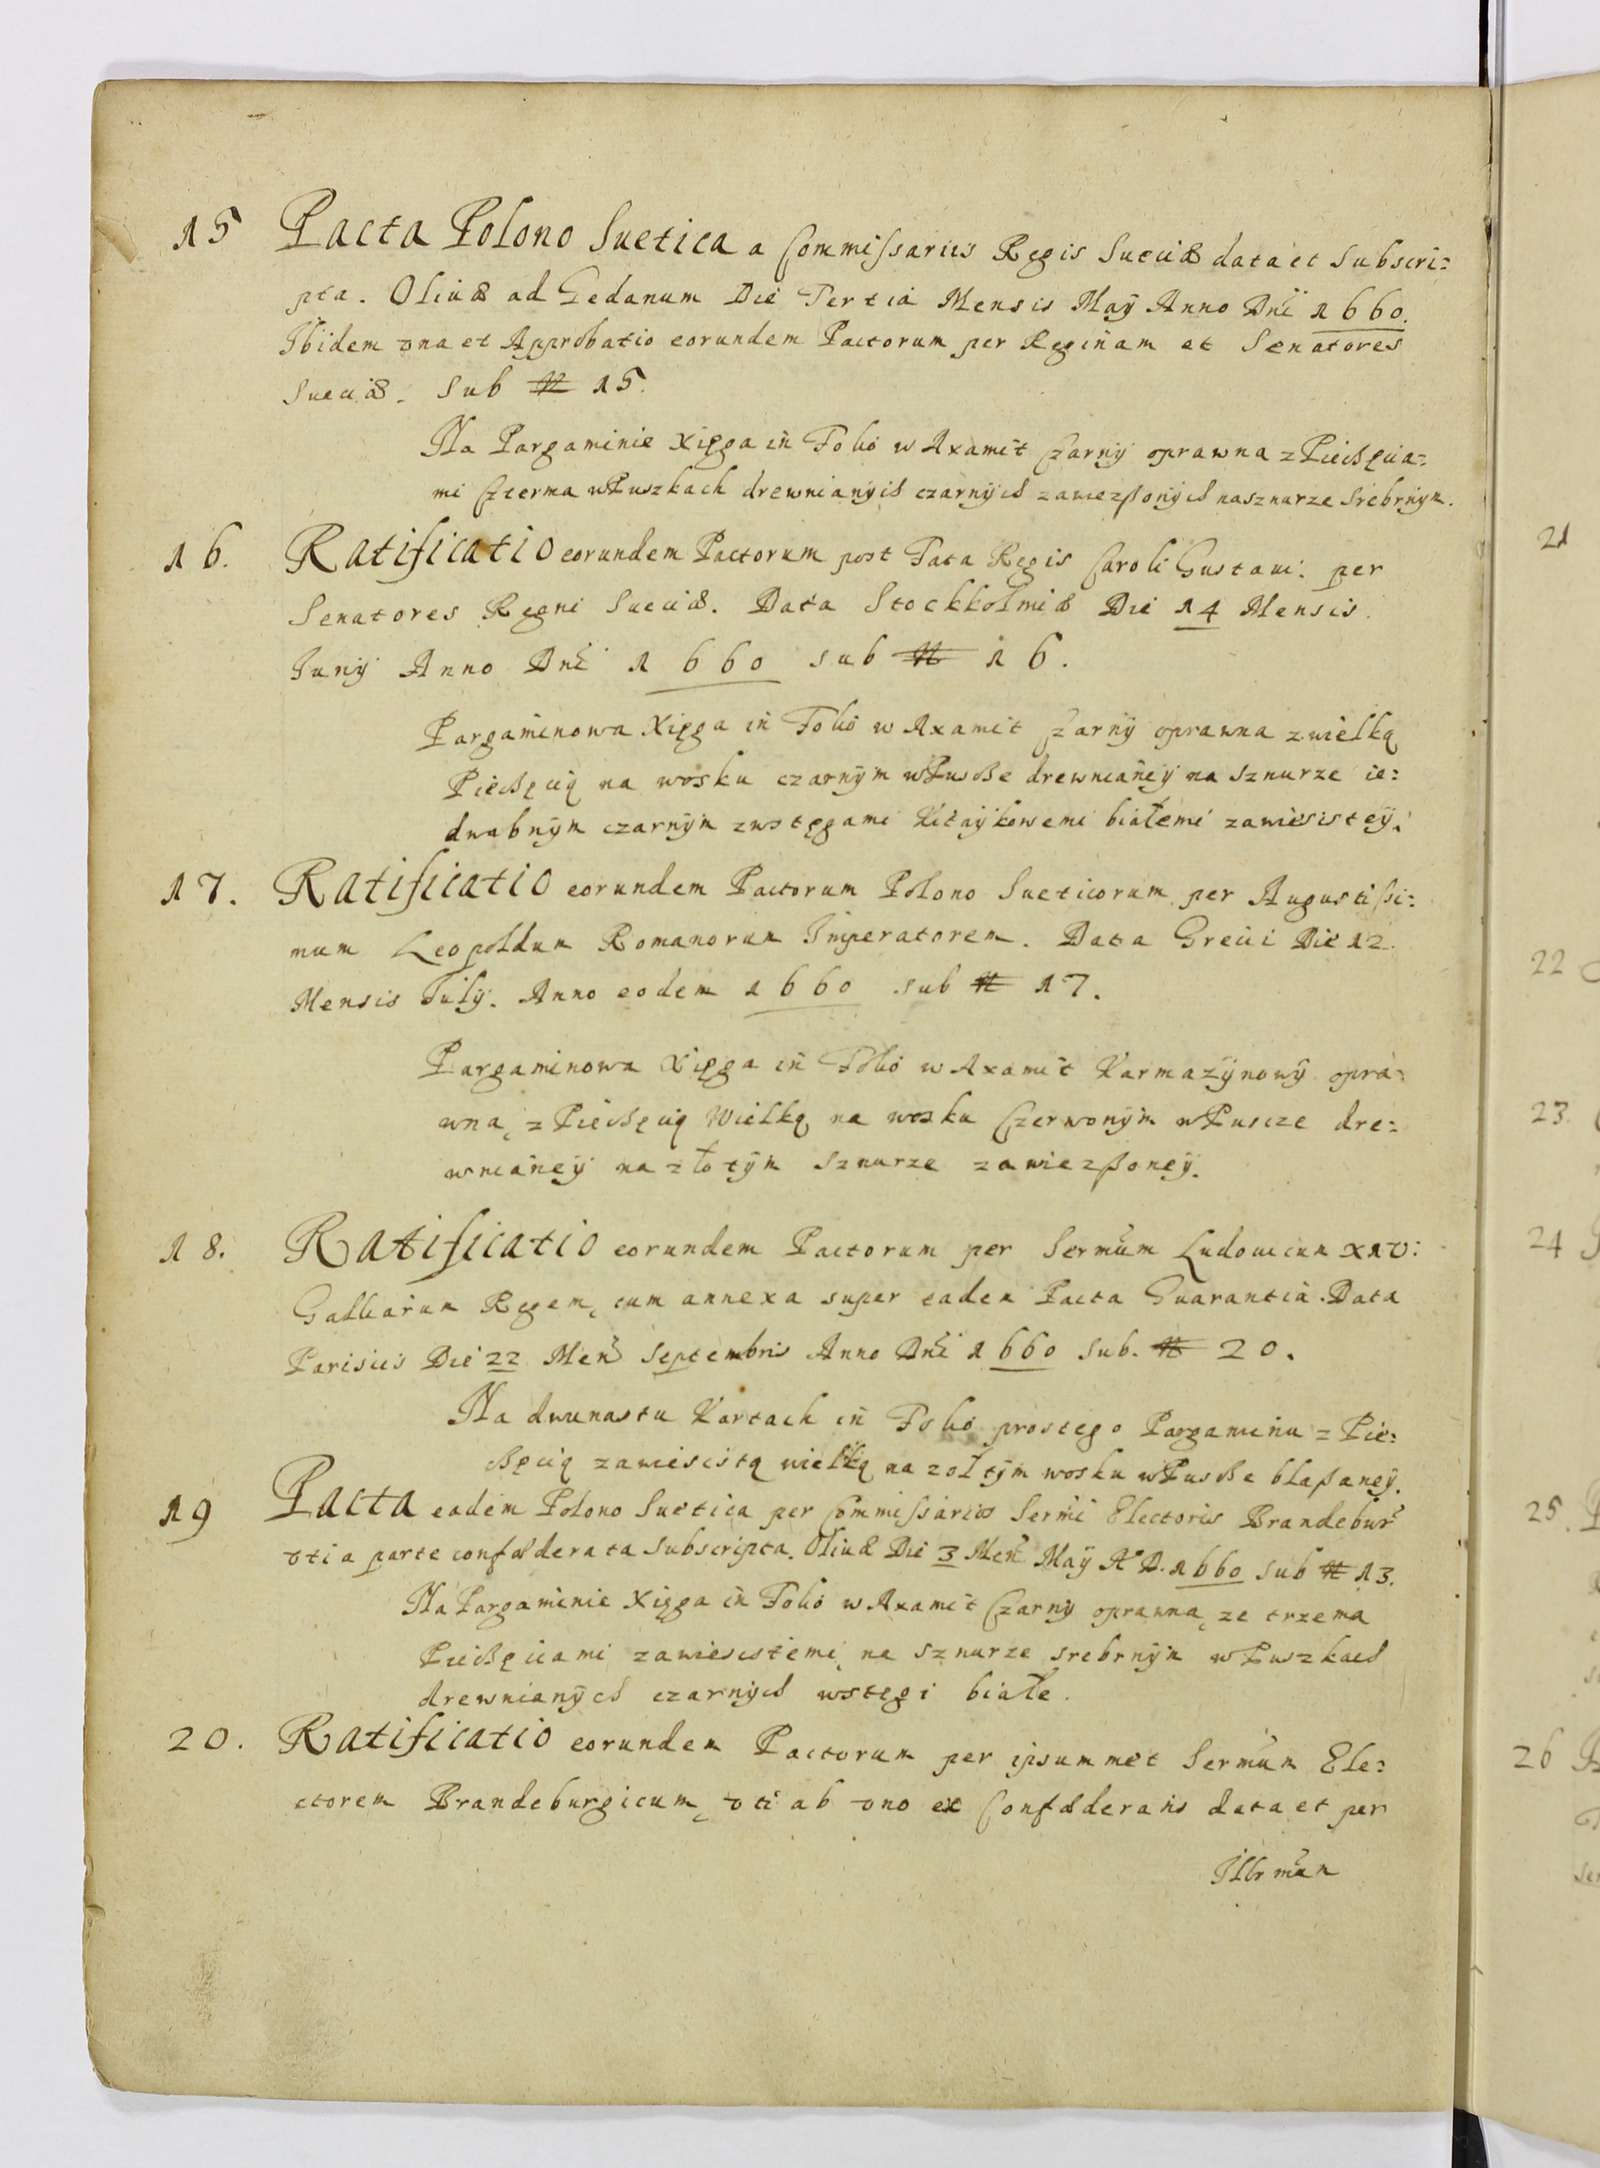 15 Pacta Polono Suetica a Commissariis Regis Sueciæ data et Subscri=
pta. Olivæ ad Gedanum Die Tertia Mensis Maÿ Anno Dni 1660.
Ibidem vna et Approbatio eorundem Pactorum per Reginam et Senatores
Sueciæ. Sub N 15.
Na Pargaminie Xięga in Folio w Axamit Czarnÿ oprawna z Pieczęcia=
mi Czterma w Puszkach drewnianÿch czarnÿch zawieszonÿch na sznurze srebrnÿm.
16. Ratificatio eorundem Pactorum post Fata Regis Caroli Gustaui. per
Senatores Regni Sueciæ. Data Stockholmiæ Die 14 Mensis
Junÿ Anno Dni 1660 sub N 16.
Pargaminowa Xięga in Folio w Axamit Czarnÿ oprawna z wielką
Pieczęcią na wosku czarnÿm w Puszce drewnianeÿ na sznurze ie=
dwabnÿm czarnÿm z wstęgami Kitaÿkowemi białemi zawiesisteÿ.
17. Ratificatio eorundem Pactorum Polono Sueticorum per Augustissi=
mum Leopoldum Romanorum Imperatorem. Data Grecii Die 12
Mensis Julÿ. Anno eodem 1660 sub N 17.
Pargaminowa Xięga in Folio w Axamit Karmazÿnowÿ opra=
wna, z Pieczęcią Wielką na wosku Czerwonÿm w Puscze dre=
wnianeÿ na złotÿm sznurze zawieszoneÿ.
18. Ratificatio eorundem Pactorum per Sermum Ludouicum X1V:
Galliarum Regem, cum annexa super eadem Pacta Guarantia. Data
Parisiis Die 22 Men Septembris Anno Dni 1660 Sub. N 20.
Na dwunastu Kartach in Folio prostego Pargaminu z Pie=
częcią zawiesistą wielką na zołtÿm wosku w Puszce blaszaneÿ.
19 Pacta eadem Polono Suetica per Commissarios Sermi Electoris Brandebur
vti a parte confœderata Subscripta. Olivæ Die 3 Men Maÿ A° D. 1660 sub N 13.
Na Pargaminie Xięga in Folio w Axamit Czarnÿ oprawna, ze trzema
Pieczęciami zawiesistemi, na sznurze srebrnÿm w Puszkach
drewnianÿch czarnÿch wstęgi białe.
20. Ratificatio eorundem Pactorum per ipsummet Sermum Ele=
ctorem Brandeburgicum, vti ab vno ex Confœderatis data et per
Illrmum
21
22
23.
24
25.
26